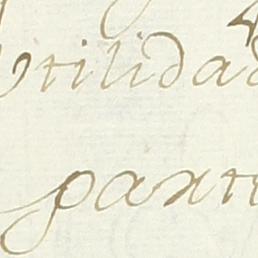 Utilidad
part